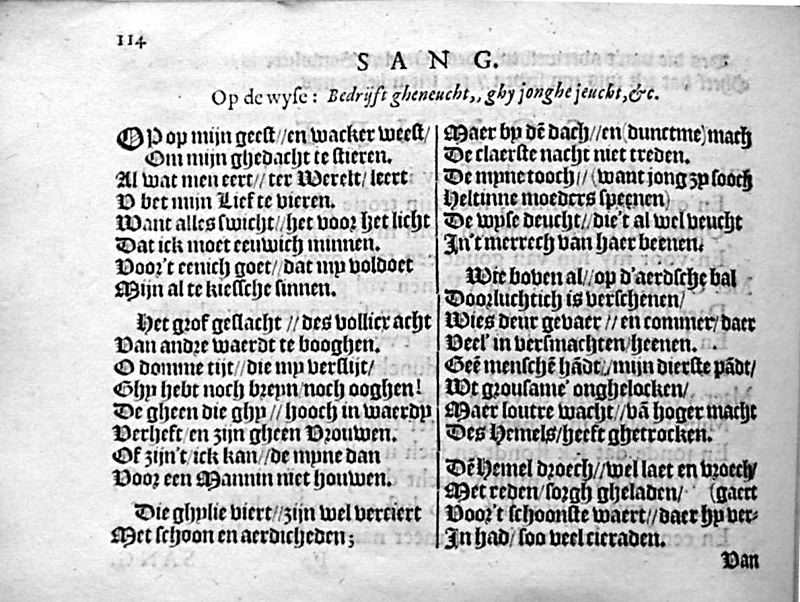 114
SANG.
Op de wyse: Bedrijft gheneucht,, ghy jonghe jeucht, &c.
OP op mijn geest//en wacker weest/
Om mijn ghedacht te stieren.
Al wat men eert// ter Werelt/ leert
V bet mijn Lief te vieren.
Want alles swicht//het voor het licht
Dat ick moet eeuwich minnen.
Voor't eenich goet//dat my voldoet
Mijn al te kiessche sinnen.
Het grof geslacht // des vollicx acht
Van andre waerdt te booghen.
O domme tijt//die my verslijt/
Ghy hebt noch breyn/noch ooghen!
De gheen die ghy // hooch in waerdy
Verheft/en zijn gheen Vrouwen.
Of zijn't/ick kan//de myne dan
Voor een Mannin niet houwen.
Die ghylie viert//zijn wel verciert
Met schoon en aerdicheden;
Maer by dē dach//en(dunctme)mach
De claerste nacht niet treden.
De myne tooch//(want jong zy sooch
Heltinne moeders speenen)
De wyse deucht//die't al wel veucht
In't merrech van haer beenen.
Wie boven al//op d'aerdsche bal
Doorluchtich is verschenen/
Wies deur gevaer//en commer/daer
Veel' in versmachten/heenen.
Geē menschē hādt//mijn dierste pādt/
Wt grousame' onghelocken/
Maer loutre wacht//vā hoger macht
Des Hemels/heeft ghetrocken.
Dē Hemel droech//wel laet en vroech/
Met reden/sorgh gheladen/ (gaert
Voor't schoonste waert//daer hy ver-
In had/soo veel cieraden.
Van